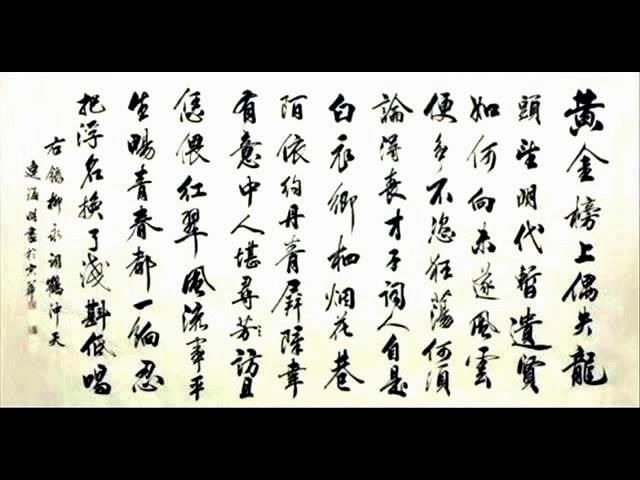 黃金榜上偶失龍
頭望明代暫遺賢
如何向未遂風雲
便爭不恣狂蕩何須
論得喪才子詞人自是
白衣卿相烟花巷
陌依約丹青屏障幸
有意中人堪尋芳訪且
恁偎紅翠風流事平
生暢青春都一餉忍
把浮名換了淺斟低唱
右錄柳永詞鶴沖天
海明書於京華